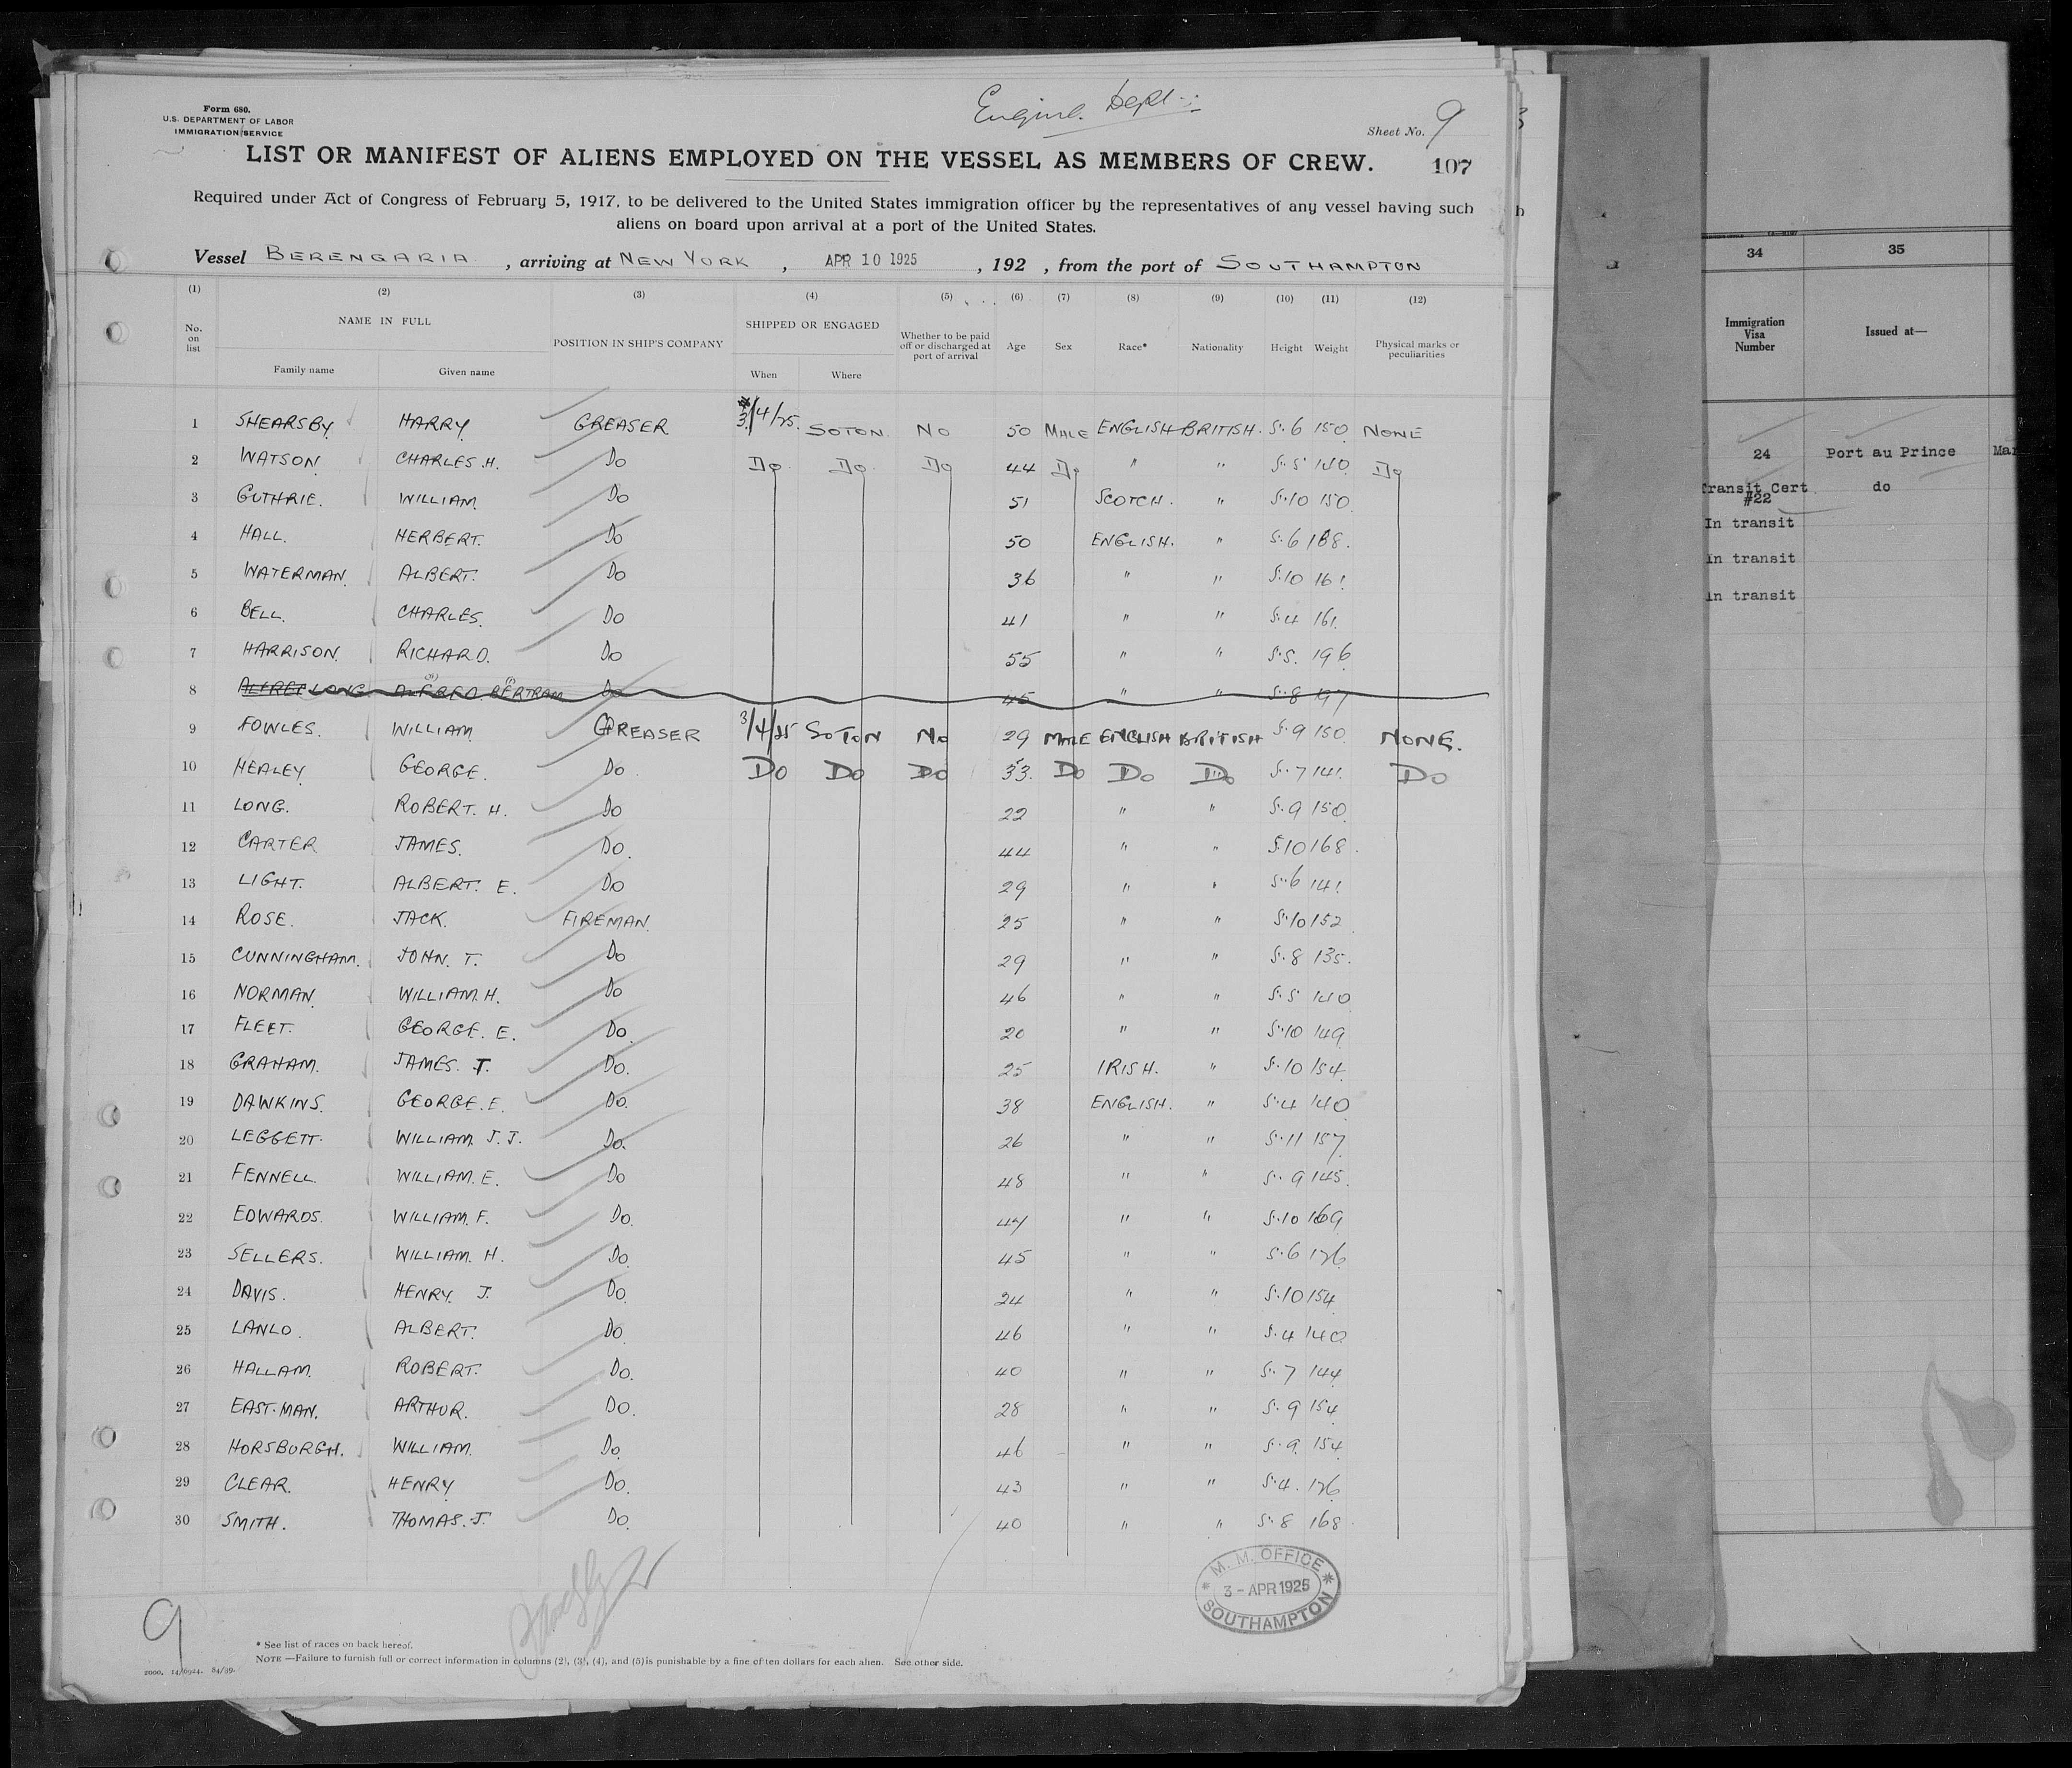 Engine. Dept:-
Form 680.
U.S. DEPARTMENT OF LABOR
IMMIGRATION SERVICE
Sheet No. 9
LIST OR MANIFEST OF ALIENS EMPLOYED ON THE VESSEL AS MEMBERS OF CREW.
107
Required under Act of Congress of February 5, 1917, to be delivered to the United States immigration officer by the representatives of any vessel having such
aliens on board upon arrival at a port of the United States.
Vessel BERENGARIA , arriving at NEW YORK , APR 10 1925 , 192 , from the port of SOUTHAMPTON
(1) (2) (3) (4) (5) (6) (7) (8) (9) (10) (11) (12)
No. on list NAME IN FULL POSITION IN SHIP'S COMPANY SHIPPED OR ENGAGED Whether to be paid off or discharged at port of arrival Age Sex Race* Nationality Height Weight Physical marks or peculiarities
Family name Given name When Where
1 SHEARSBY HARRY GREASER 3/4/25. SOTON. NO 50 MALE ENGLISH BRITISH. 5.6 150 NONE
2 WATSON CHARLES.H. DO DO DO DO 44 DO " " 5.5 140 DO
3 GUTHRIE. WILLIAM. DO 51 SCOTCH. " 5.10 150
4 HALL. HERBERT. DO 50 ENGLISH. " 5.6 188.
5 WATERMAN. ALBERT. DO 36 " " 5.10 161
6 BELL. CHARLES. DO 41 " " 5.4 161.
7 HARRISON. RICHARD. DO 55 " " 5.5. 196
8 LONG ALFRED. BERTRAM DO 45 " " 5.8 197
9 FOWLES. WILLIAM GREASER 3/4/25 SOTON NO 29 MALE ENGLISH BRITISH 5.9 150 NONE.
10 HEALEY GEORGE. DO. DO DO DO 33. DO DO DO 5.7 141. DO
11 LONG. ROBERT. H. DO 22 " " 5.9 150.
12 CARTER JAMES. DO. 44 " " 5.10 168.
13 LIGHT. ALBERT. E. DO 29 " " 5.6 141
14 ROSE. JACK. FIREMAN. 25 " " 5.10 152
15 CUNNINGHAM. JOHN. T. DO 29 " " 5.8 135.
16 NORMAN. WILLIAM. H. DO 46 " " 5.5 140
17 FLEET. GEORGE. E. DO. 20 " " 5.10 149
18 GRAHAM. JAMES. T. DO. 25 IRISH. " 5.10 154.
19 DAWKINS. GEORGE. E. DO. 38 ENGLISH. " 5.4 140
20 LEGGETT. WILLIAM. J. J. DO. 26 " " 5.11 157
21 FENNELL. WILLIAM. E. DO 48 " " 5.9 145.
22 EDWARDS. WILLIAM. F. DO. 47 " " 5.10 169
23 SELLERS. WILLIAM. H. DO. 45 " " 5.6 176
24 DAVIS. HENRY. J. DO. 24 " " 5.10 154
25 LANLO. ALBERT. DO. 46 " " 5.4 140
26 HALLAM. ROBERT. DO. 40 " " 5.7 144
27 EAST.MAN. ARTHUR. DO. 28 " " 5.9 154
28 HORSBURGH. WILLIAM. DO. 46 " " 5.9. 154
29 CLEAR. HENRY DO. 43 " " 5.4. 176
30 SMITH. THOMAS. J. DO. 40 " " 5.8 168
M. M. OFFICE
3 - APR 1925
SOUTHAMPTON
9
* See list of races on back hereof.
NOTE —Failure to furnish full or correct information in columns (2), (3), (4), and (5) is punishable by a fine of ten dollars for each alien. See other side.
34 35
Immigration Visa Number Issued at—
24 Port au Prince
Transit Cert do
#22
In transit
In transit
In transit